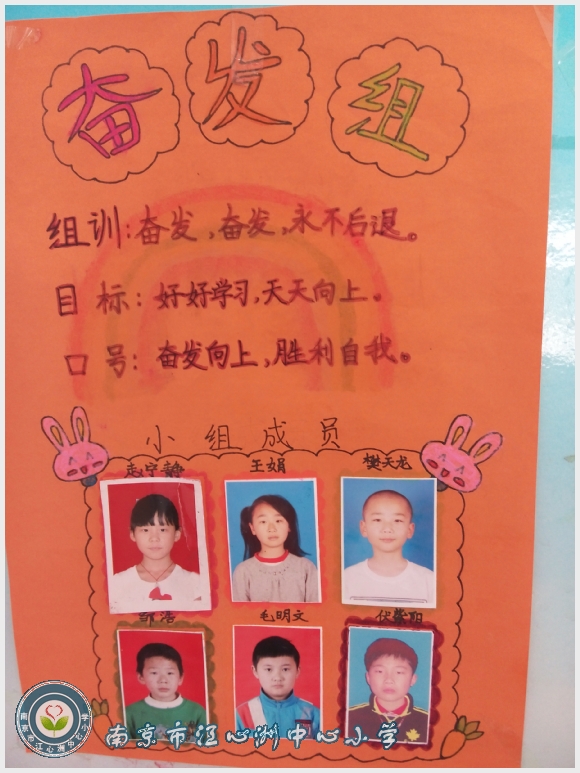 奋发组
组训:奋发,奋发,永不后退。
目标:好好学习,天天向上。
口号:奋发向上,胜利自我。
小组成员
王娟 樊天龙
邹浩 毛明文
南京市江心洲中心小学
南京市江心洲中心小学